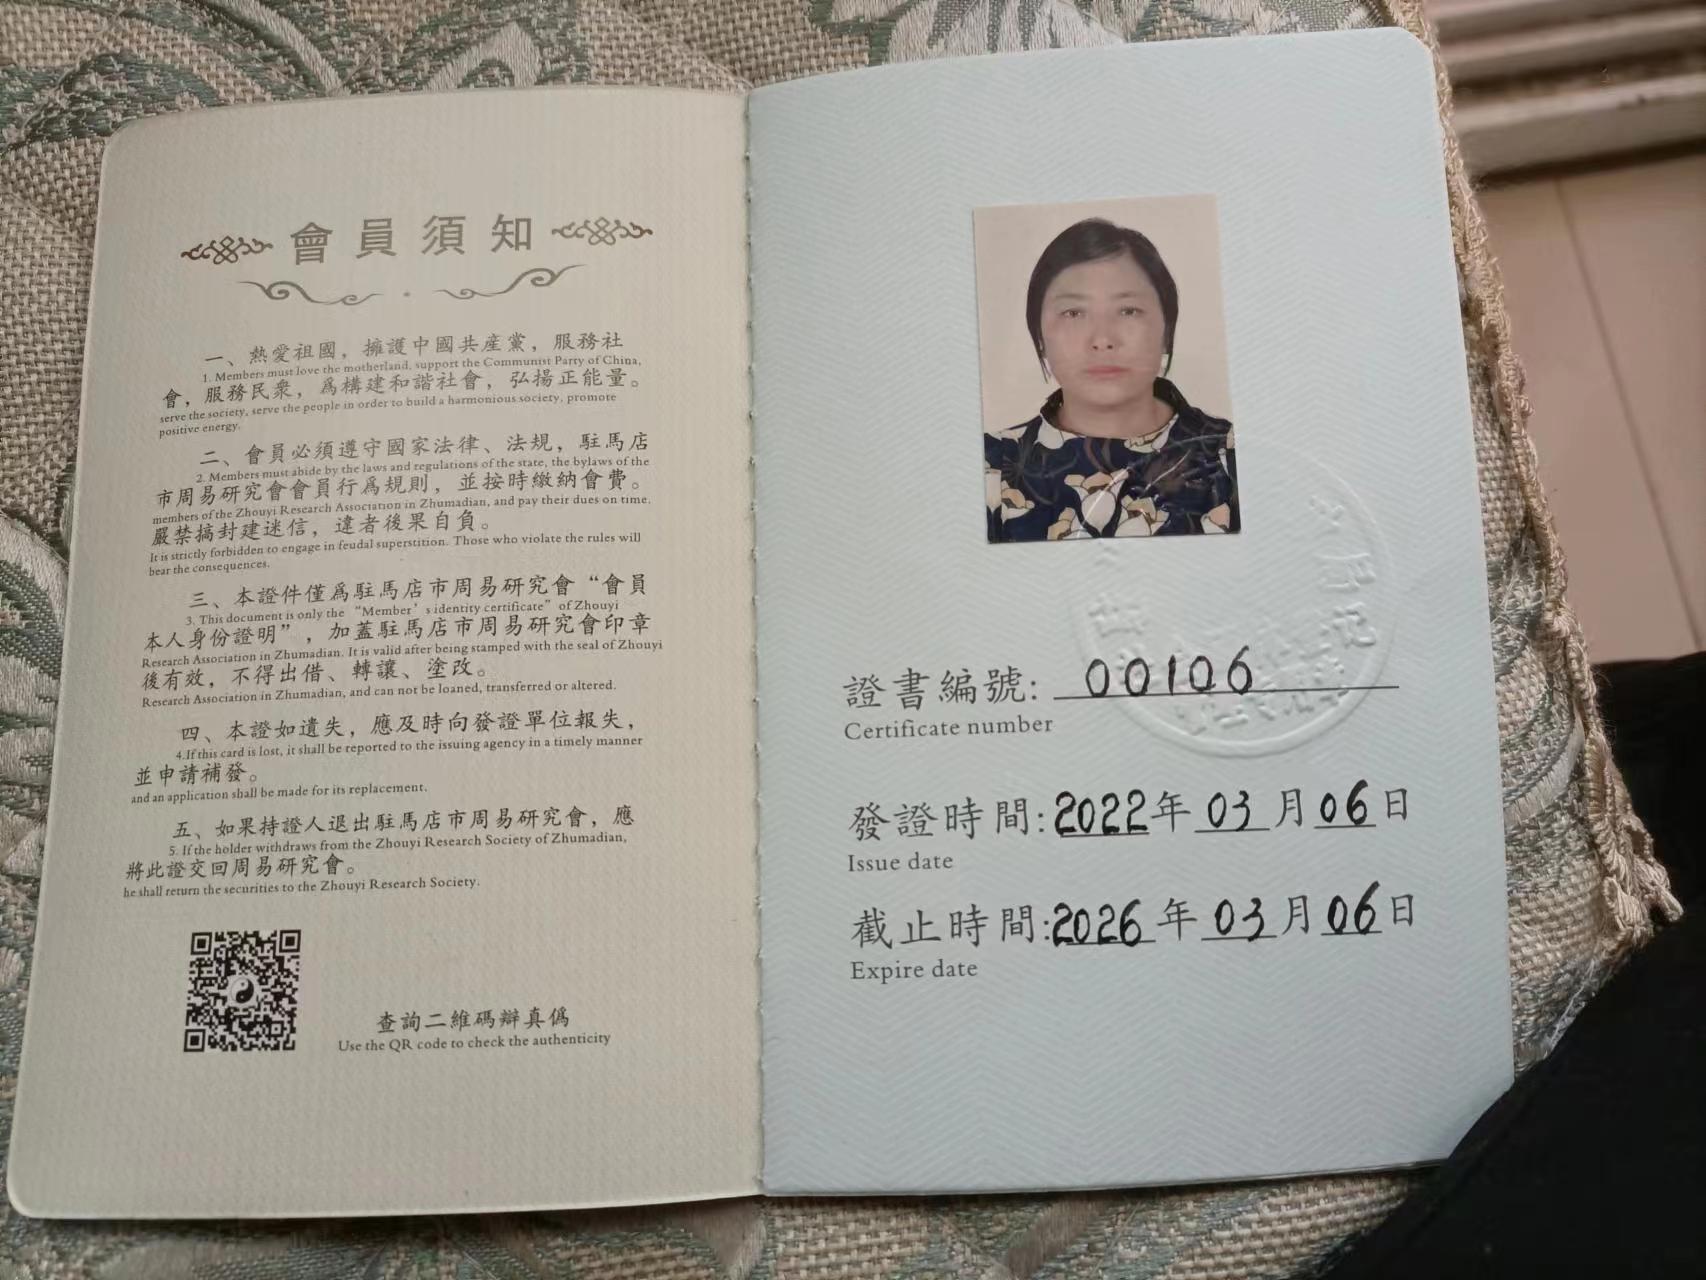 會員須知
一、熱愛祖國，擁護中國共産黨，服務社
1. Members must love the motherland, support the Communist Party of China,
會，服務民衆，爲構建和諧社會，弘揚正能量。
serve the society, serve the people in order to build a harmonious society, promote
positive energy.
二、會員必須遵守國家法律、法規，駐馬店
2. Members must abide by the laws and regulations of the state, the bylaws of the
市周易研究會會員行爲規則，並按時繳納會費。
members of the Zhouyi Research Association in Zhumadian, and pay their dues on time.
嚴禁搞封建迷信，違者後果自負。
It is strictly forbidden to engage in feudal superstition. Those who violate the rules will
bear the consequences.
三、本證件僅爲駐馬店市周易研究會“會員
3. This document is only the “Member’s identity certificate” of Zhouyi
本人身份證明”，加蓋駐馬店市周易研究會印章
Research Association in Zhumadian. It is valid after being stamped with the seal of Zhouyi
後有效，不得出借、轉讓、塗改。
Research Association in Zhumadian, and can not be loaned, transferred or altered.
四、本證如遺失，應及時向發證單位報失，
4.If this card is lost, it shall be reported to the issuing agency in a timely manner
並申請補發。
and an application shall be made for its replacement.
五、如果持證人退出駐馬店市周易研究會，應
5. If the holder withdraws from the Zhouyi Research Society of Zhumadian,
將此證交回周易研究會。
he shall return the securities to the Zhouyi Research Society.
查詢二維碼辯真僞
Use the QR code to check the authenticity
證書編號: 00106
Certificate number
發證時間:2022年03月06日
Issue date
截止時間:2026年03月06日
Expire date